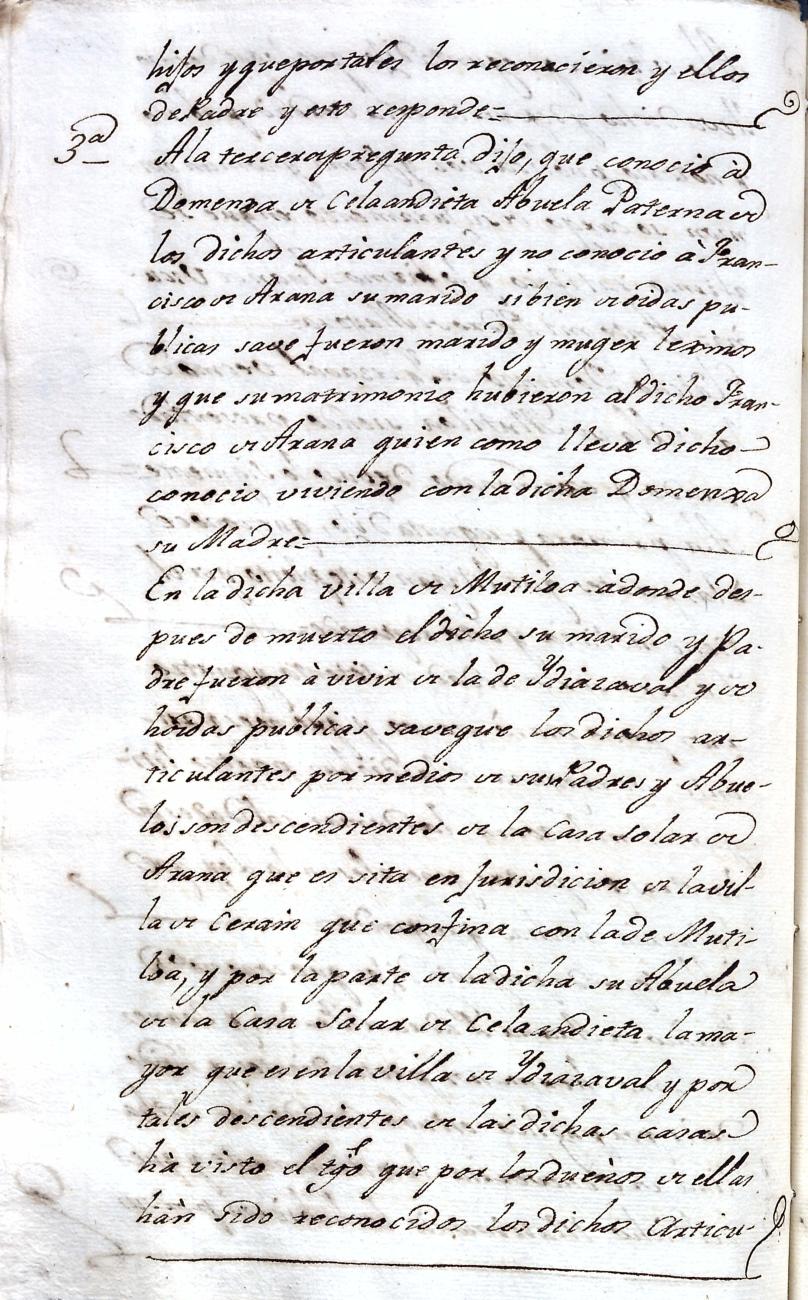 hijos y que por tales los reconocieron y ellos
de Padre y esto responde=
3ª
A la tercera pregunta dijo, que conocio à
Domenxa de Celaandieta Abuela Paterna de
los dichos articulantes y no conocio à Fran-
cisco de Arana su marido si bien de oidas pu-
blicas save fueron marido y muger lexmos
y que su matrimonio hubieron al dicho Fran-
cisco de Arana quien como lleva dicho
conocio viviendo con la dicha Domenxa
su Madre=
En la dicha villa de Mutiloa àdonde des-
pues de muerto el dicho su marido y Pa-
dre fueron à vivir de la de Ydiazaval y de
hoidas publicas save que los dichos ar-
ticulantes por medios de sus Padres y Abue-
los son descendientes de la Casa solar de
Arana que es sita en Jurisdicion de la vil-
la de Cerain que confina con la de Muti-
lòa, y por la parte de la dicha su Abuela
de la Casa Solar de Celaandieta la ma-
yor que es en la villa de Ydiazaval y por
tales descendientes de las dichas casas
hà visto el tgo que por los dueños de ellas
hàn sido reconocidos los dichos Articu-